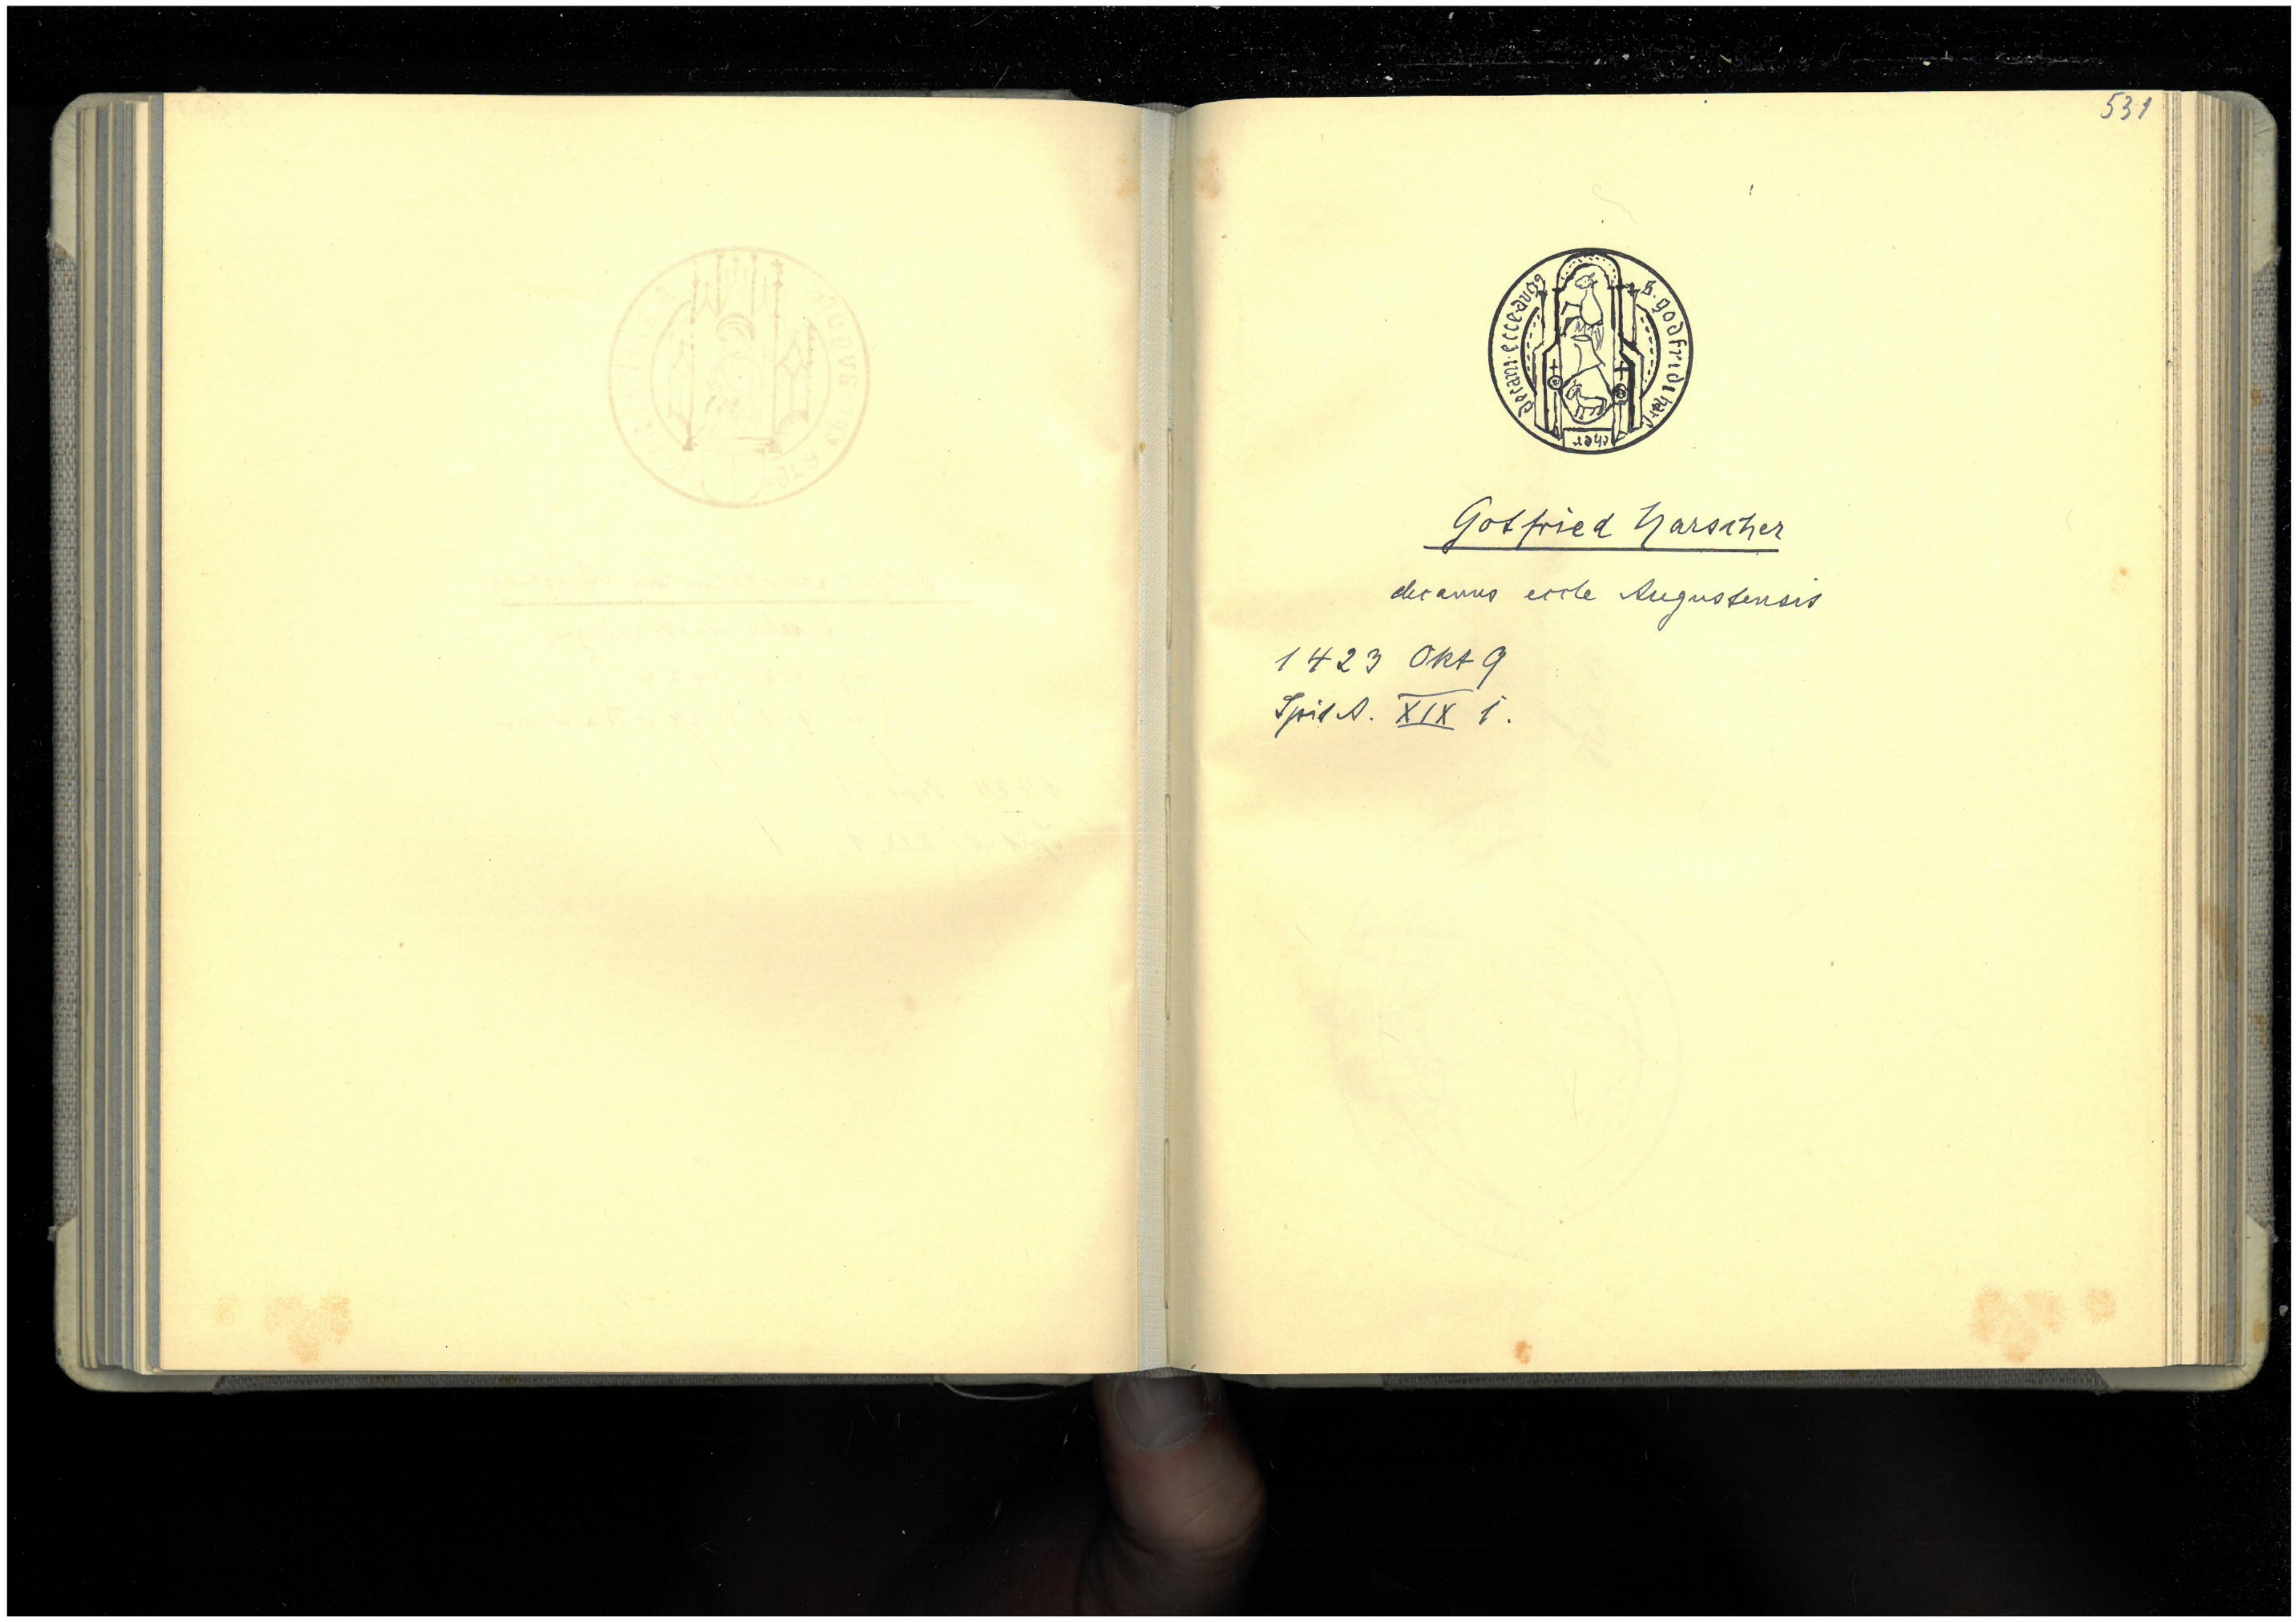 531
s. godfridi harscher
decani. ecce augg
Gotfried Harscher
decanus eccle Augustensis
1423 Okt 9
Spit A. XIX 1.